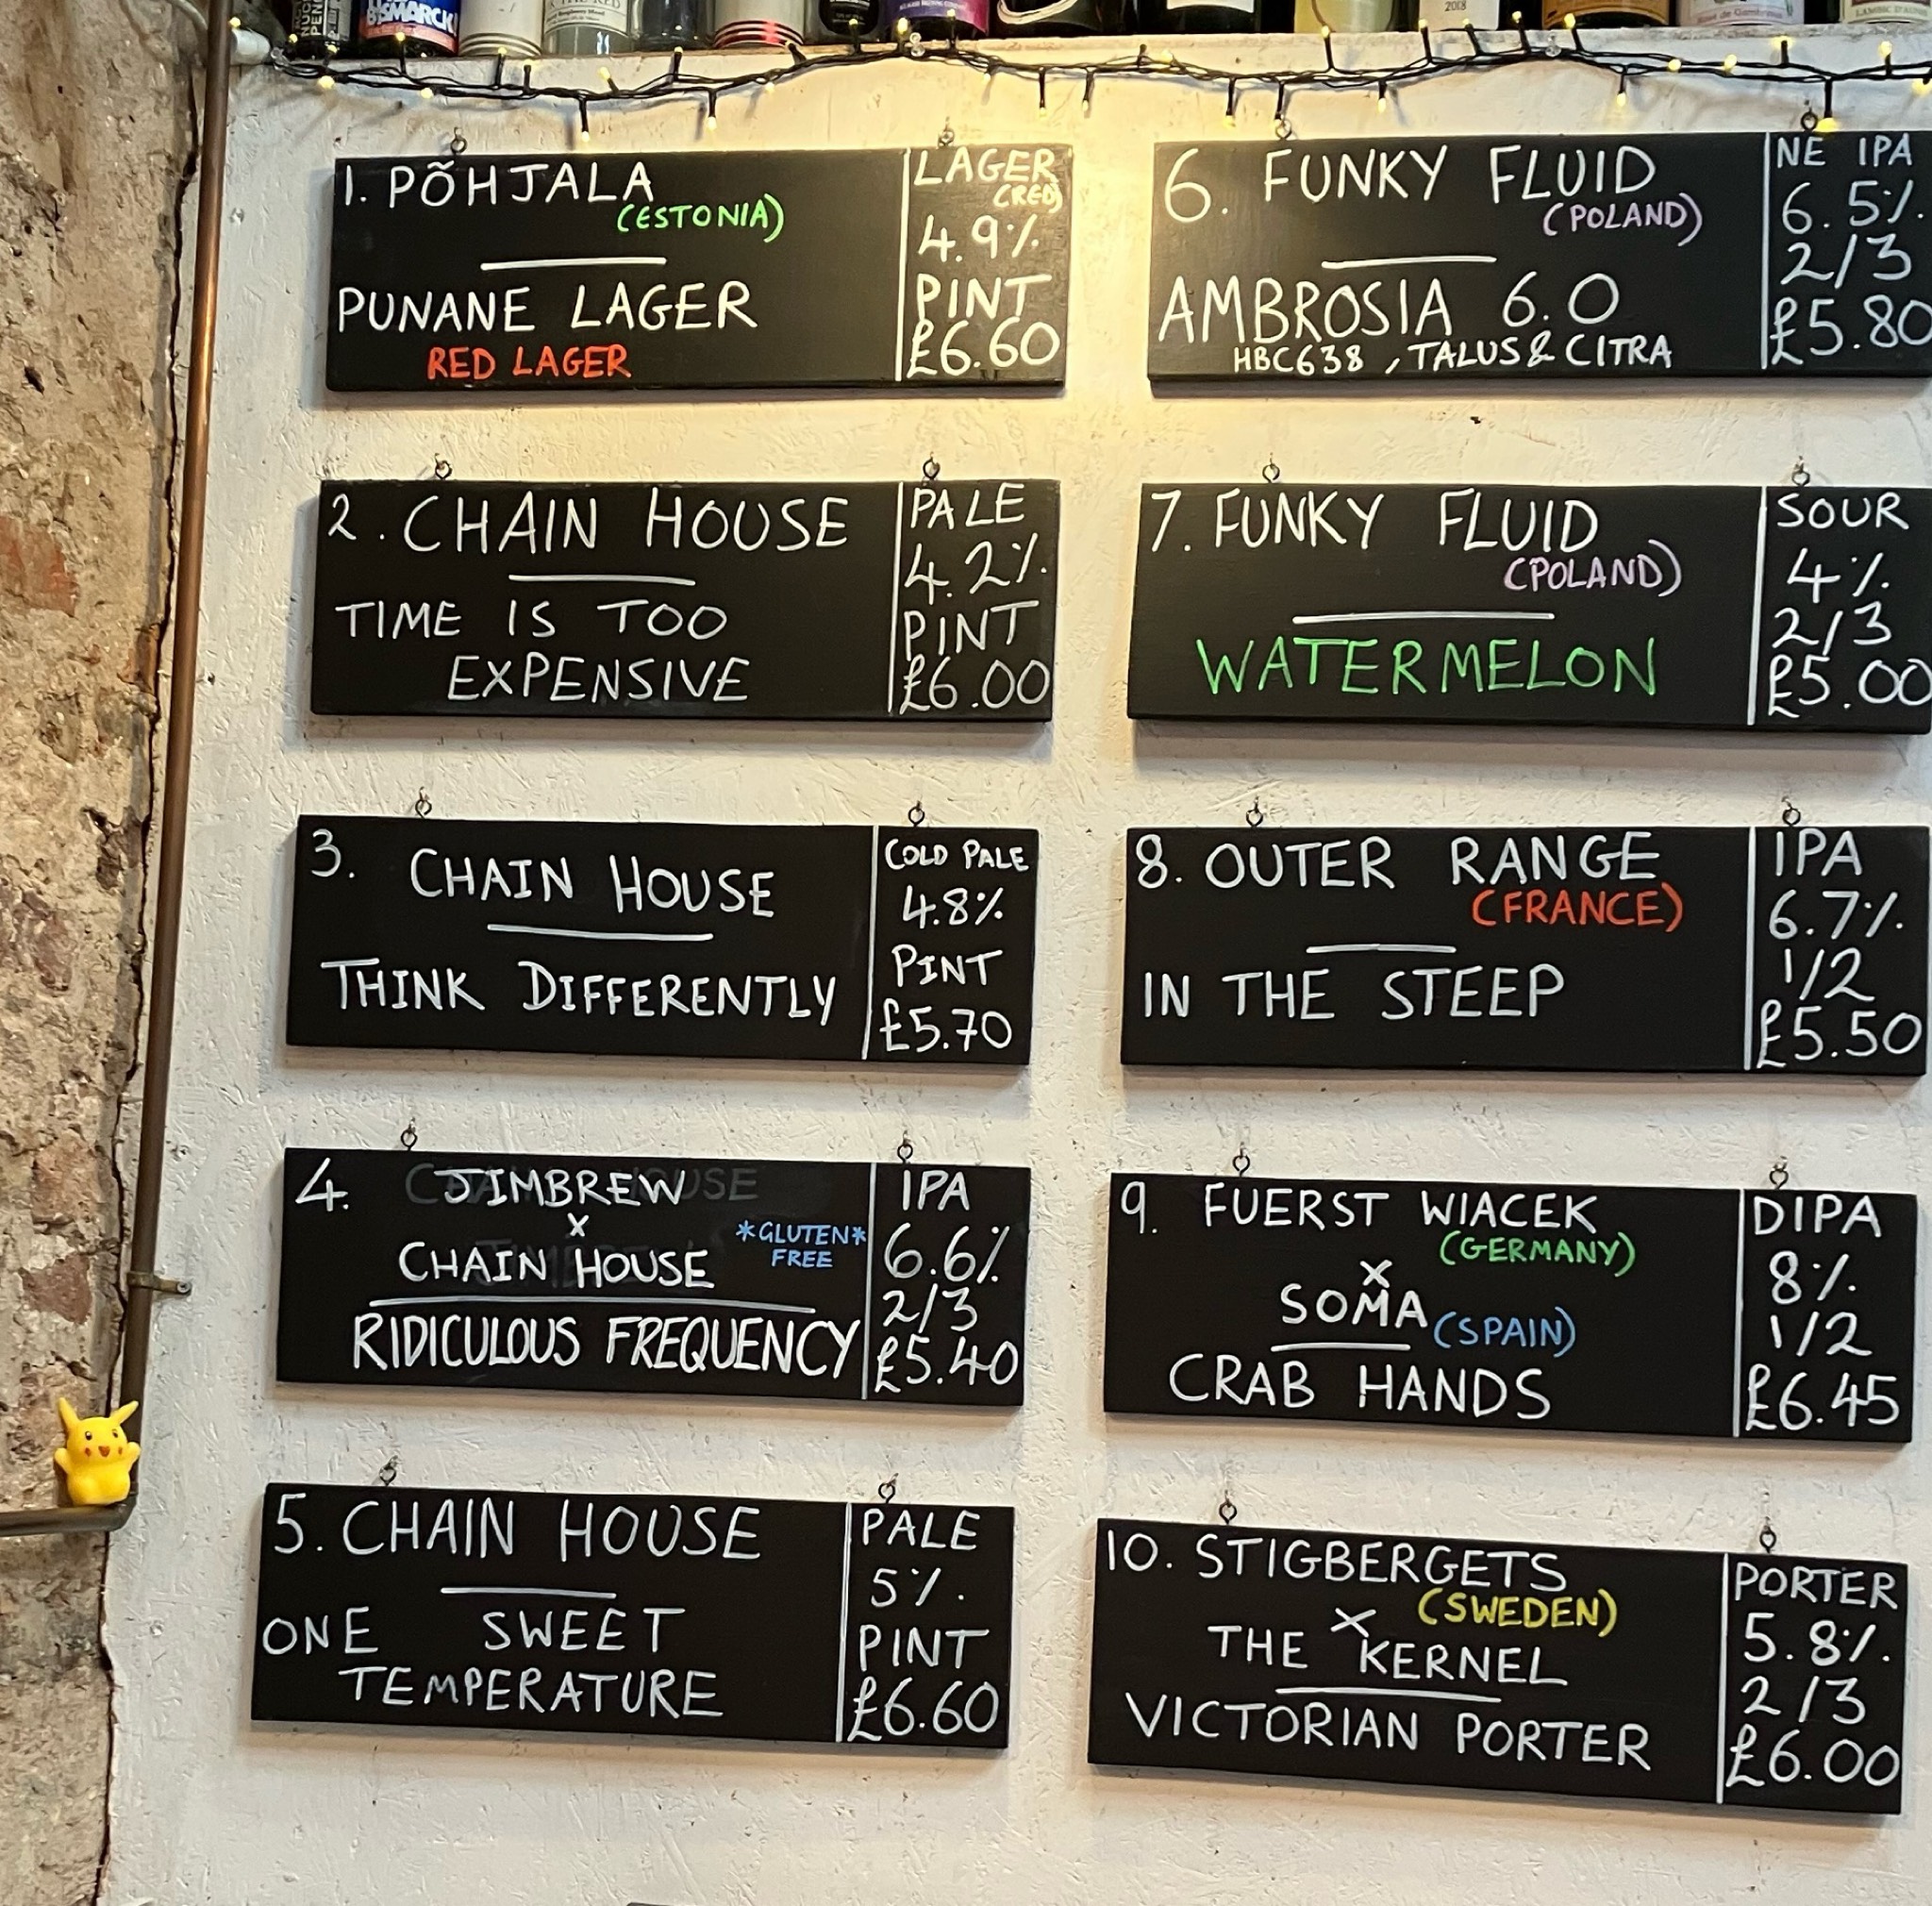 BISMARCK
2018
1. PÕHJALA
(ESTONIA)
PUNANE LAGER
RED LAGER
LAGER
(RED)
4.9%
PINT
£6.60
2. CHAIN HOUSE
TIME IS TOO
EXPENSIVE
PALE
4.2%
PINT
£6.00
3. CHAIN HOUSE
THINK DIFFERENTLY
COLD PALE
4.8%
PINT
£5.70
4. JIMBREW
X
CHAIN HOUSE
*GLUTEN*
FREE
RIDICULOUS FREQUENCY
IPA
6.6%
2/3
£5.40
5. CHAIN HOUSE
ONE SWEET
TEMPERATURE
PALE
5%.
PINT
£6.60
6. FUNKY FLUID
(POLAND)
AMBROSIA 6.0
HBC638, TALUS & CITRA
NE IPA
6.5%.
2/3
£5.80
7. FUNKY FLUID
(POLAND)
WATERMELON
SOUR
4%.
2/3
£5.00
8. OUTER RANGE
(FRANCE)
IN THE STEEP
IPA
6.7%.
1/2
£5.50
9. FUERST WIACEK
(GERMANY)
X
SOMA (SPAIN)
CRAB HANDS
DIPA
8%.
1/2
£6.45
10. STIGBERGETS
(SWEDEN)
X
THE KERNEL
VICTORIAN PORTER
PORTER
5.8%.
2/3
£6.00